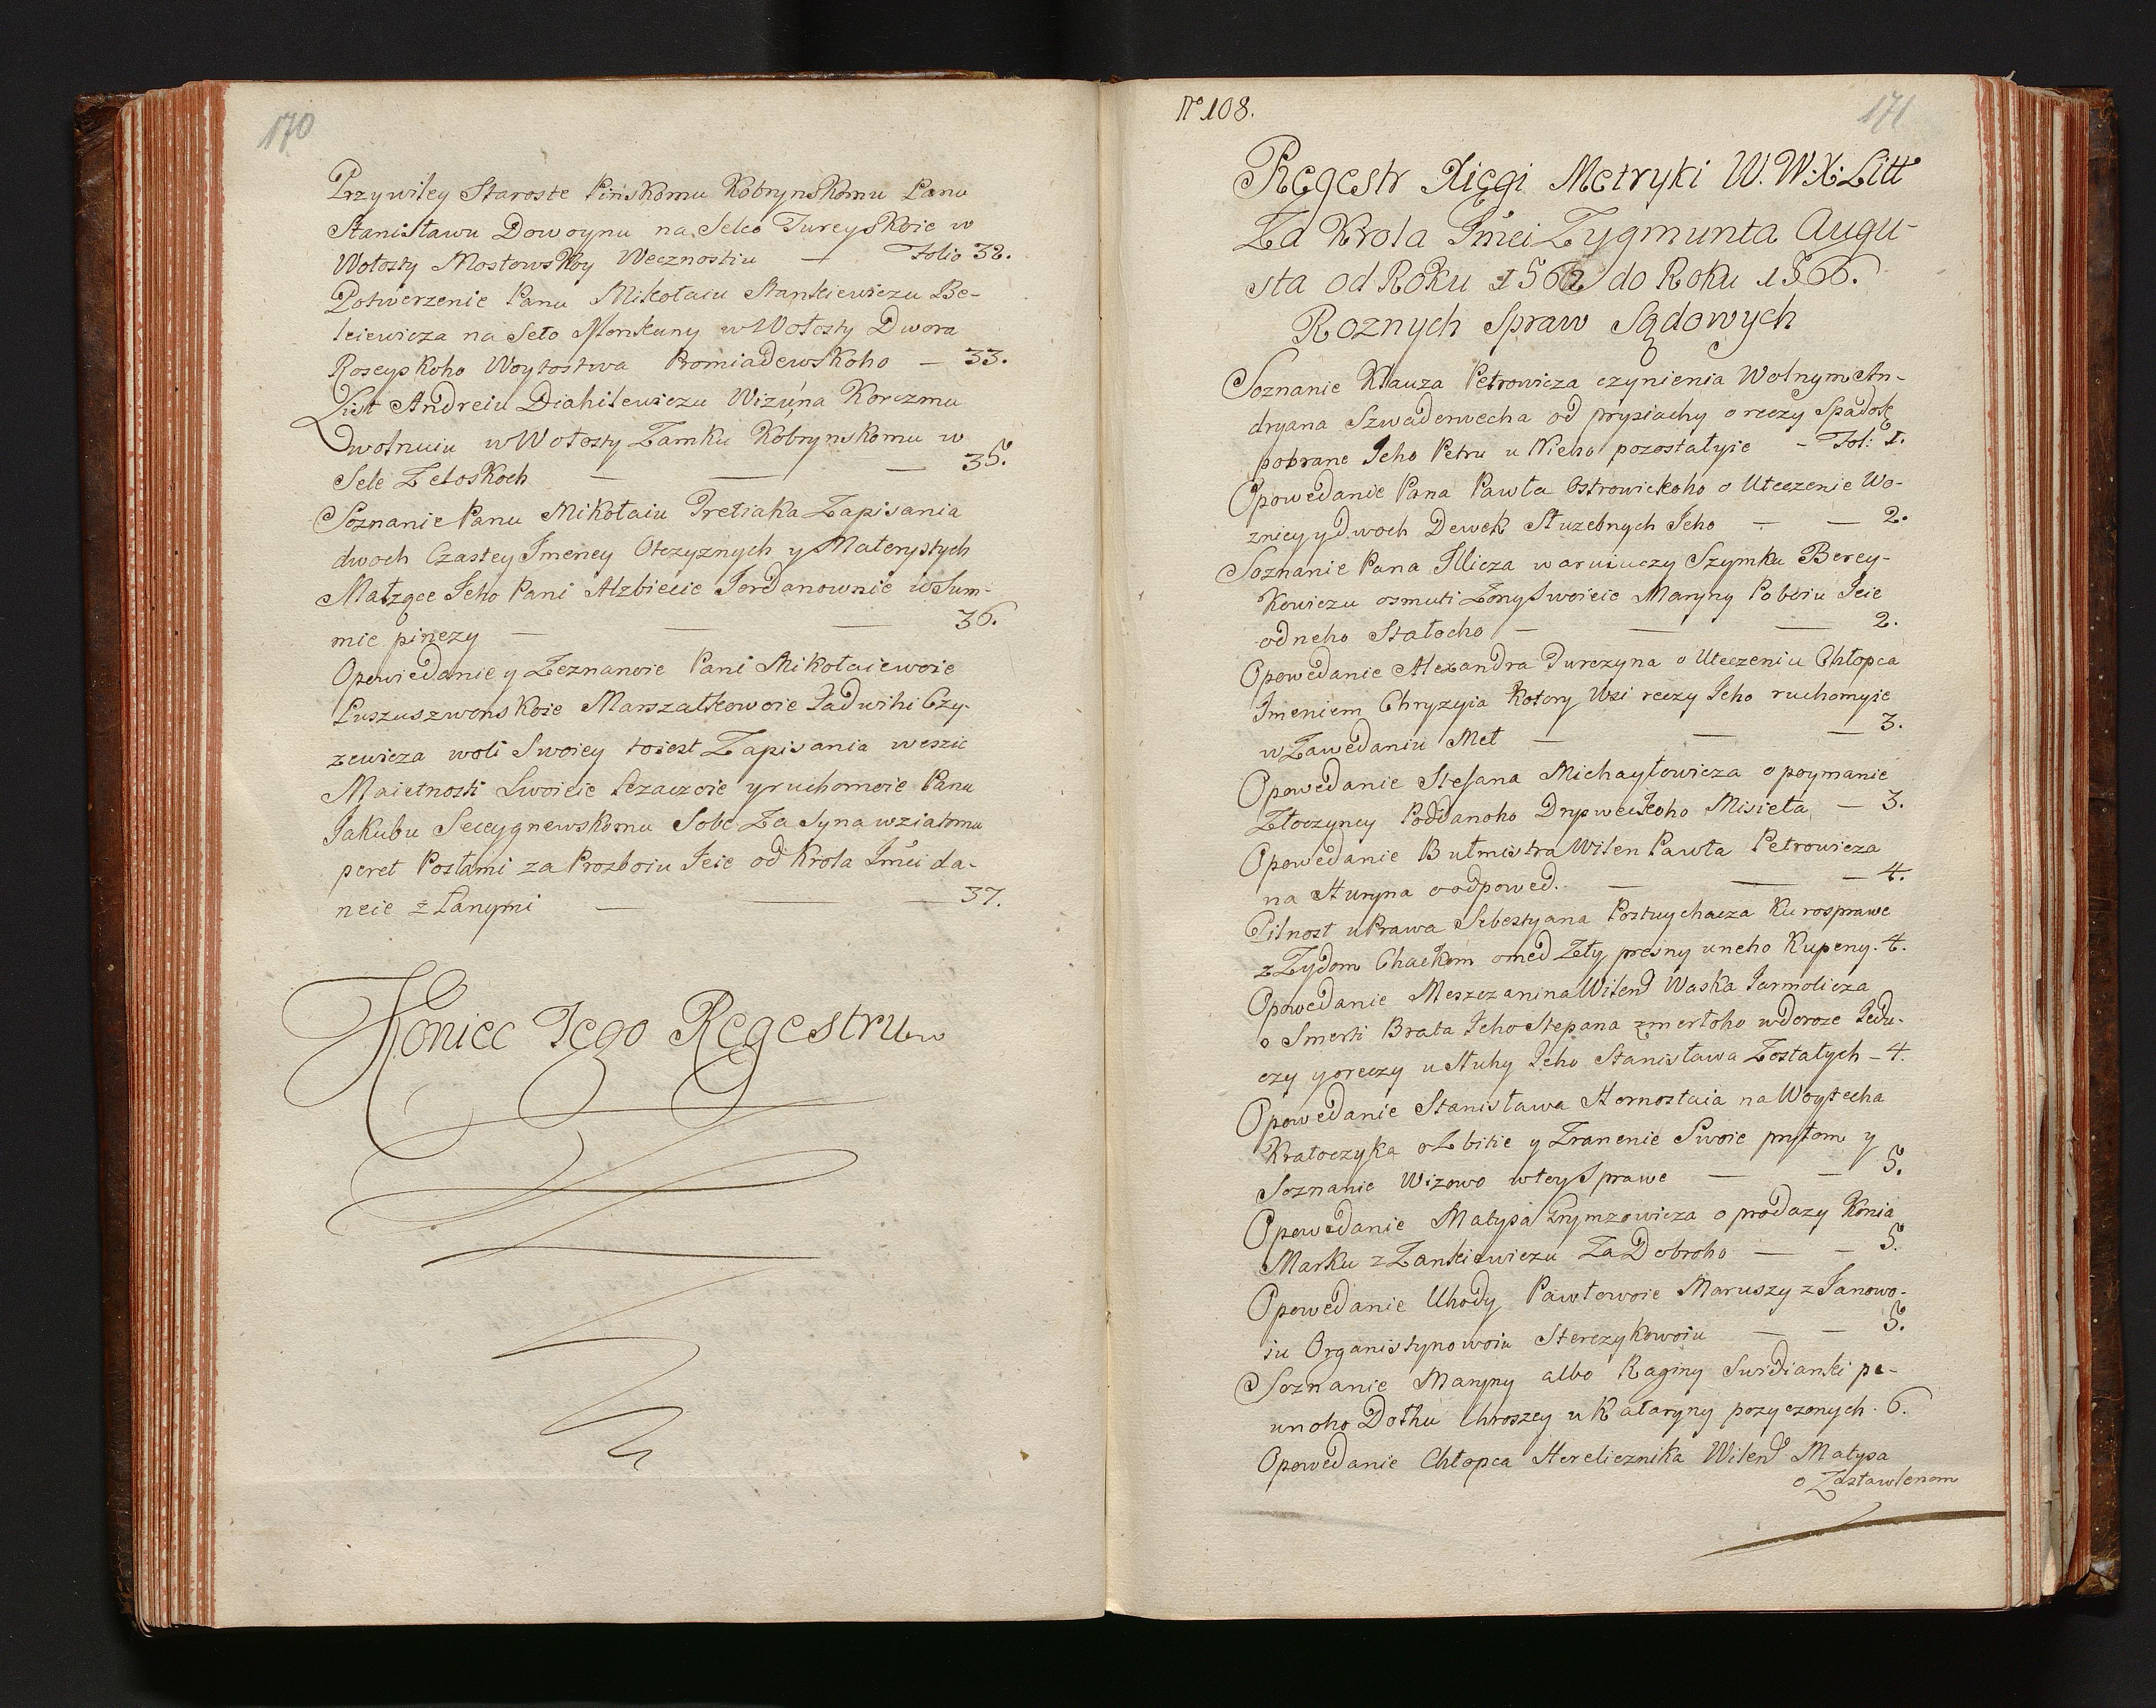 170
Przywiley Staroste Pinskomu Kobrynskomu Panu
Stanisławu Dowoynu na Selco Tureyskoie w
Wołosty Mostowskoy Wecznostiu — Folio 32.
Potwerzenie Panu Mikołaiu Stankiewiczu Be-
lciewicza na Seło Monkuny w Wołosty Dwora
Roseyskoho Woytostwa Promiadewskoho — 33.
List Andreiu Diahilewiczu Wizuna Korczmu
Dwolnuiu w Wołosty Zamku Kobrynskomu w
Sele Zeloskoch — — — 35.
Soznanie Panu Mikołaiu Tretiaka Zapisania
dwoch Czastey Imeney Otczyznych y Materystych
Małżące Jeho Pani Alzbiecie Jordanownie w Sum-
mie pinezy — — — 36.
Opowiedanie y Zeznanoie Pani Mikołaiewoie
Puszuszwenskoie Marszałkowoie Jadwihi Czy-
zewicza woli Swoiey toiest Zapisania weszic
Maietnosti Swoieie leżaczoie y ruchomoie Panu
Jakubu Secygnewskomu Sobe Za Syna wziatomu
peret Posłami za Prozboiu Jeie od Krola Jmći da-
neie z Łanymi — — — 37.
Koniec Tego Regestruw
Nº 108.
171
Regestr Xięgi Metryki W. W: X: Litt
Za Krola Jmći Zygmunta Augu-
sta od Roku 1562 do Roku 1566.
Roznych Spraw Sądowych
Soznanie Klauza Petrowicza czynienia Wolnym An-
dryana Szwaderwecha od prysiachy o reczy Spadołę
pobrane Jeho Petru u Nieho pozostałyie — Fol: 1.
Opowedanie Pana Pawła Ostrowickoho o Uteczenie Wo-
znicy y Dwoch Dewek Służebnych Jeho — — 2.
Soznanie Pana Illicza waruiuczy Szymku Berey-
Kowiczu osmuti Zony Swoieie Maryny Poboiu Jeie
od neho Stałocho — — — 2.
Opowedanie Alexandra Turczyna o Uteczeniu Chłopca
Imeniem Chryzyia Kotory Wsi reczy Jeho ruchomyie
w Zawedaniu Met — — — 3.
Opowedanie Stefana Michayłowicza o poymanie
Złoczyncy Poddanoho Drypweckoho Misieła — 3.
Opowedanie Bułmistra Wilen Pawła Petrowicza
na Huryna o odpowed. — — — 4.
Pilnost u Prawa Sebestyana Postuychacza Ku rosprawe
z Żydom Chackom o med Zły presny u neho Kupeny. 4.
Opowedanie Meszczanina Wilend Waska Jarmolicza
o Smerti Brata Jeho Stepana zmerłoho w doroze Jedu-
czy y o reczy u Słuhy Jeho Stanisława Zostałych — 4.
Opowedanie Stanisława Hornostaia na Woytecha
Kratoczyka o Zbitie y Zranenie Swoie prytom y
Soznanie Wizowo w tey Sprawe — — 5.
Opowedanie Matysa Grymzowicza o prodazy Konia
Marku z Zankiewiczu Za Dobroho — — 5.
Opowedanie Uhody Pawłowoie Maruszy z Janowo-
iu Organistynowoiu Sterczykowoiu — — 5.
Soznanie Maryny albo Raginy Swidianki pe-
wnoho Dołhu Chroszey u Kataryny pozyczonych. 6.
Opowedanie Chłopca Horelicznika Wilend Matysa
o Zastawlenom